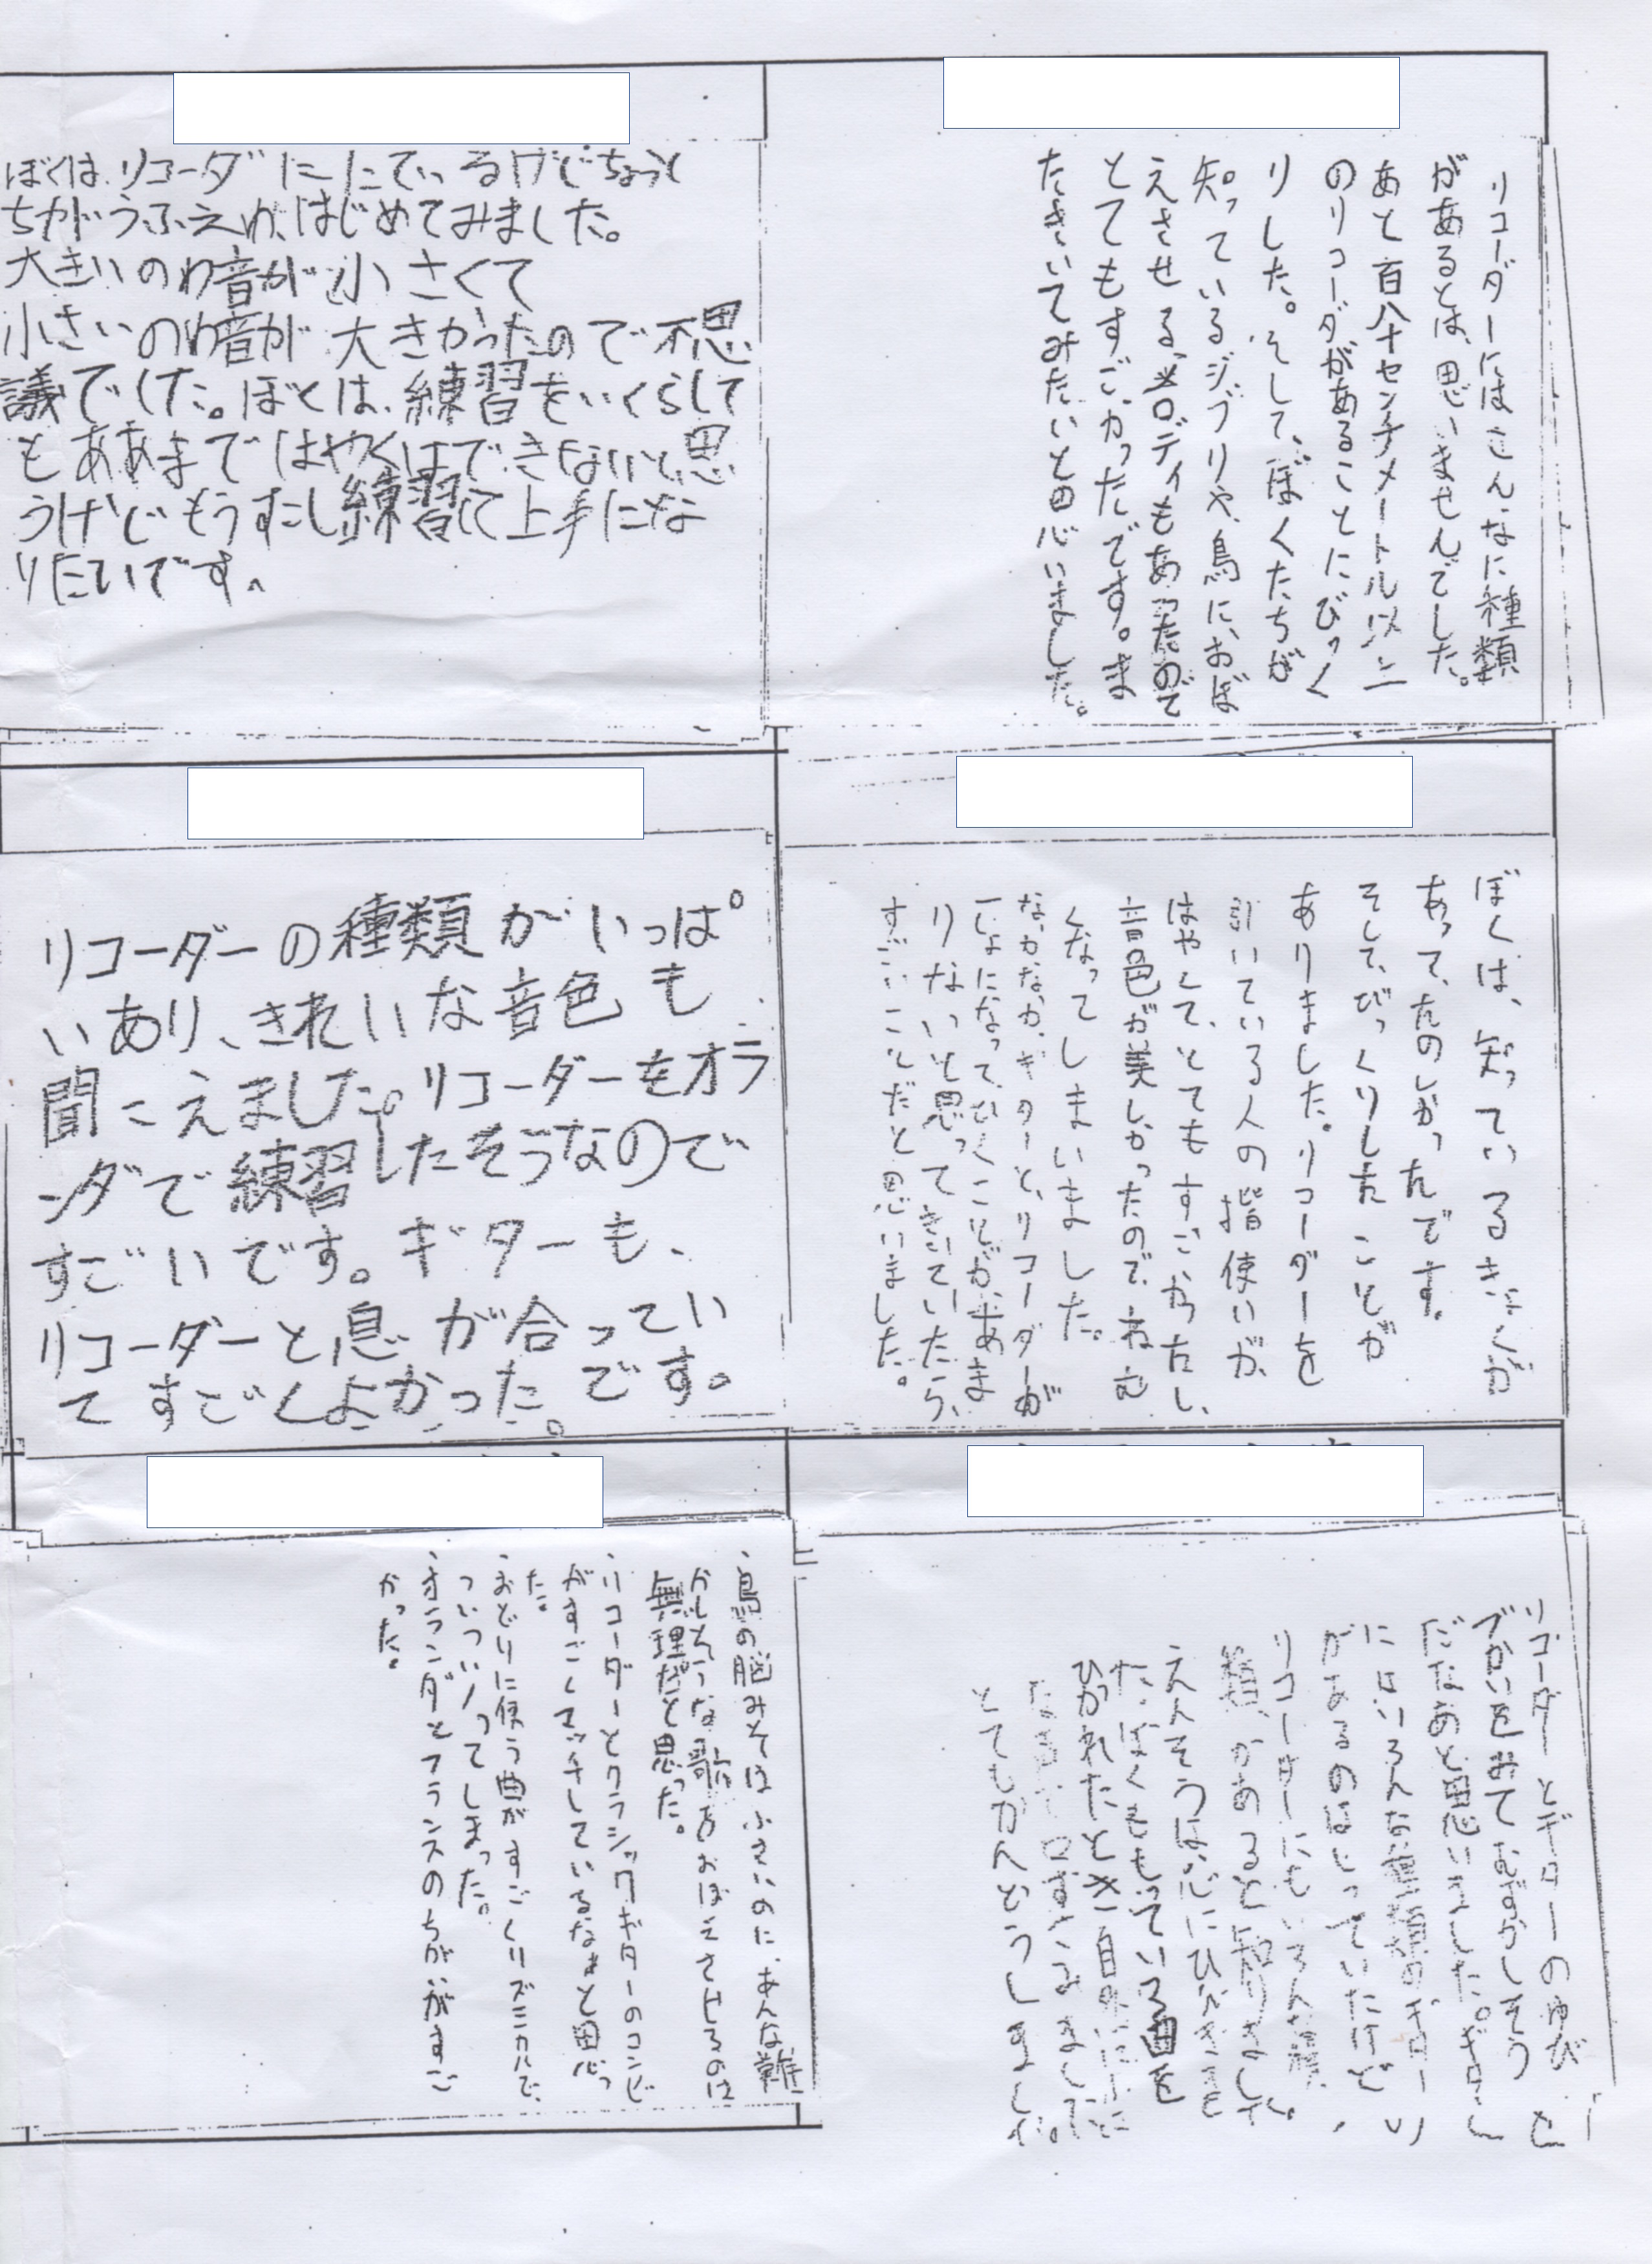 リコーダーにはこんなに種類
があるとは、思いませんでした。
あと百八十センチメートル以上
のリコーダがあることにびっく
りした。そして、ぼくたちが
知っているジブリや、鳥に、おぼ
えさせる、メロディもあったので
とてもすごかったです。ま
たきいてみたいと思いました。
ぼくは、リコーダににているけどちょっと
ちがうふえわ、はじめてみました。
大きいのわ音が小さくて
小さいのわ音が大きかったので不思
議でした。ぼくは、練習をいくらして
もああまではやくはできないと、思
うけどもうすこし練習して上手にな
りたいです。
ぼくは、知っているきょくが
あって、たのしかったんです。
そして、びっくりしたことが
ありました。リコーダーを
引いている人の指使いが、
はやして、とてもすごかったし、
音色が美しかったので、ねむ
くなってしまいました。
なかなか、ギターと、リコーダーが
一しょになって、ひくことが、あま
りないと思ってきいていたら、
すごいことだと思いました。
リコーダーの種類がいっぱ
いあり、きれいな音色も
聞こえました。リコーダーをオラ
ンダで練習したそうなので
すごいです。ギターも、
リコーダーと息が合ってい
てすごくよかった。です。
リコーダーとギターのゆび
づかいをみてむずかしそう
だなあと思いました。ギター
にはいろんな種類のギター
があるのはしっていたけど、
リコーダーにもいろんな種
類があると知りました。
えんそうは、心にひびきまし
た。ぼくももっている曲を
ひかれたとき、自然に
口ずさみまして、
とてもかんどうしました。
・鳥の脳みそはふさいのに、あんな難
かしそうな歌をおぼえさせるのは
無理だと思った。
・リコーダーとクラシックギターのコンビ
がすごくマッチしているなぁと思っ
た。
・おどりに使う曲がすごくリズミカルで、
ついついノってしまった。
・オランダとフランスのちがいがすご
かった。